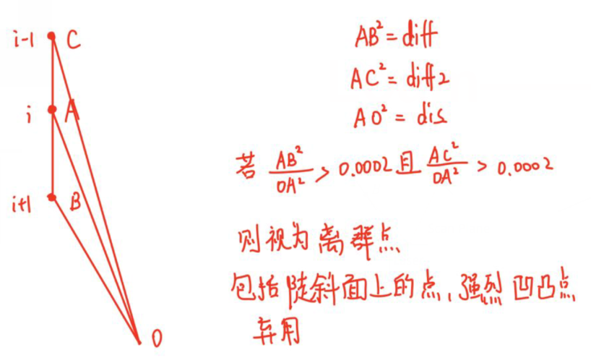 i-1 C
i A
i+1 B
O
AB²=diff
AC²=diff2
AO²=dis
若 AB²/OA² > 0.0002 且 AC²/OA² > 0.0002
则视为离群点
包括陡斜面上的点，强烈凹凸点
弃用